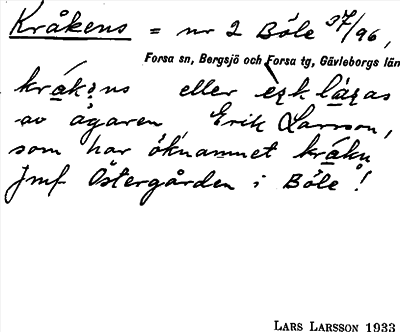 Kråkens = nr 2 Böle 37/96,
Forsa sn, Bergsjö och Forsa tg, Gävleborgs län
eller
av ägaren Erik Larsson,
som har öknamnet kråkn
Jmf Östergården i Böle!
LARS LARSSON 1933